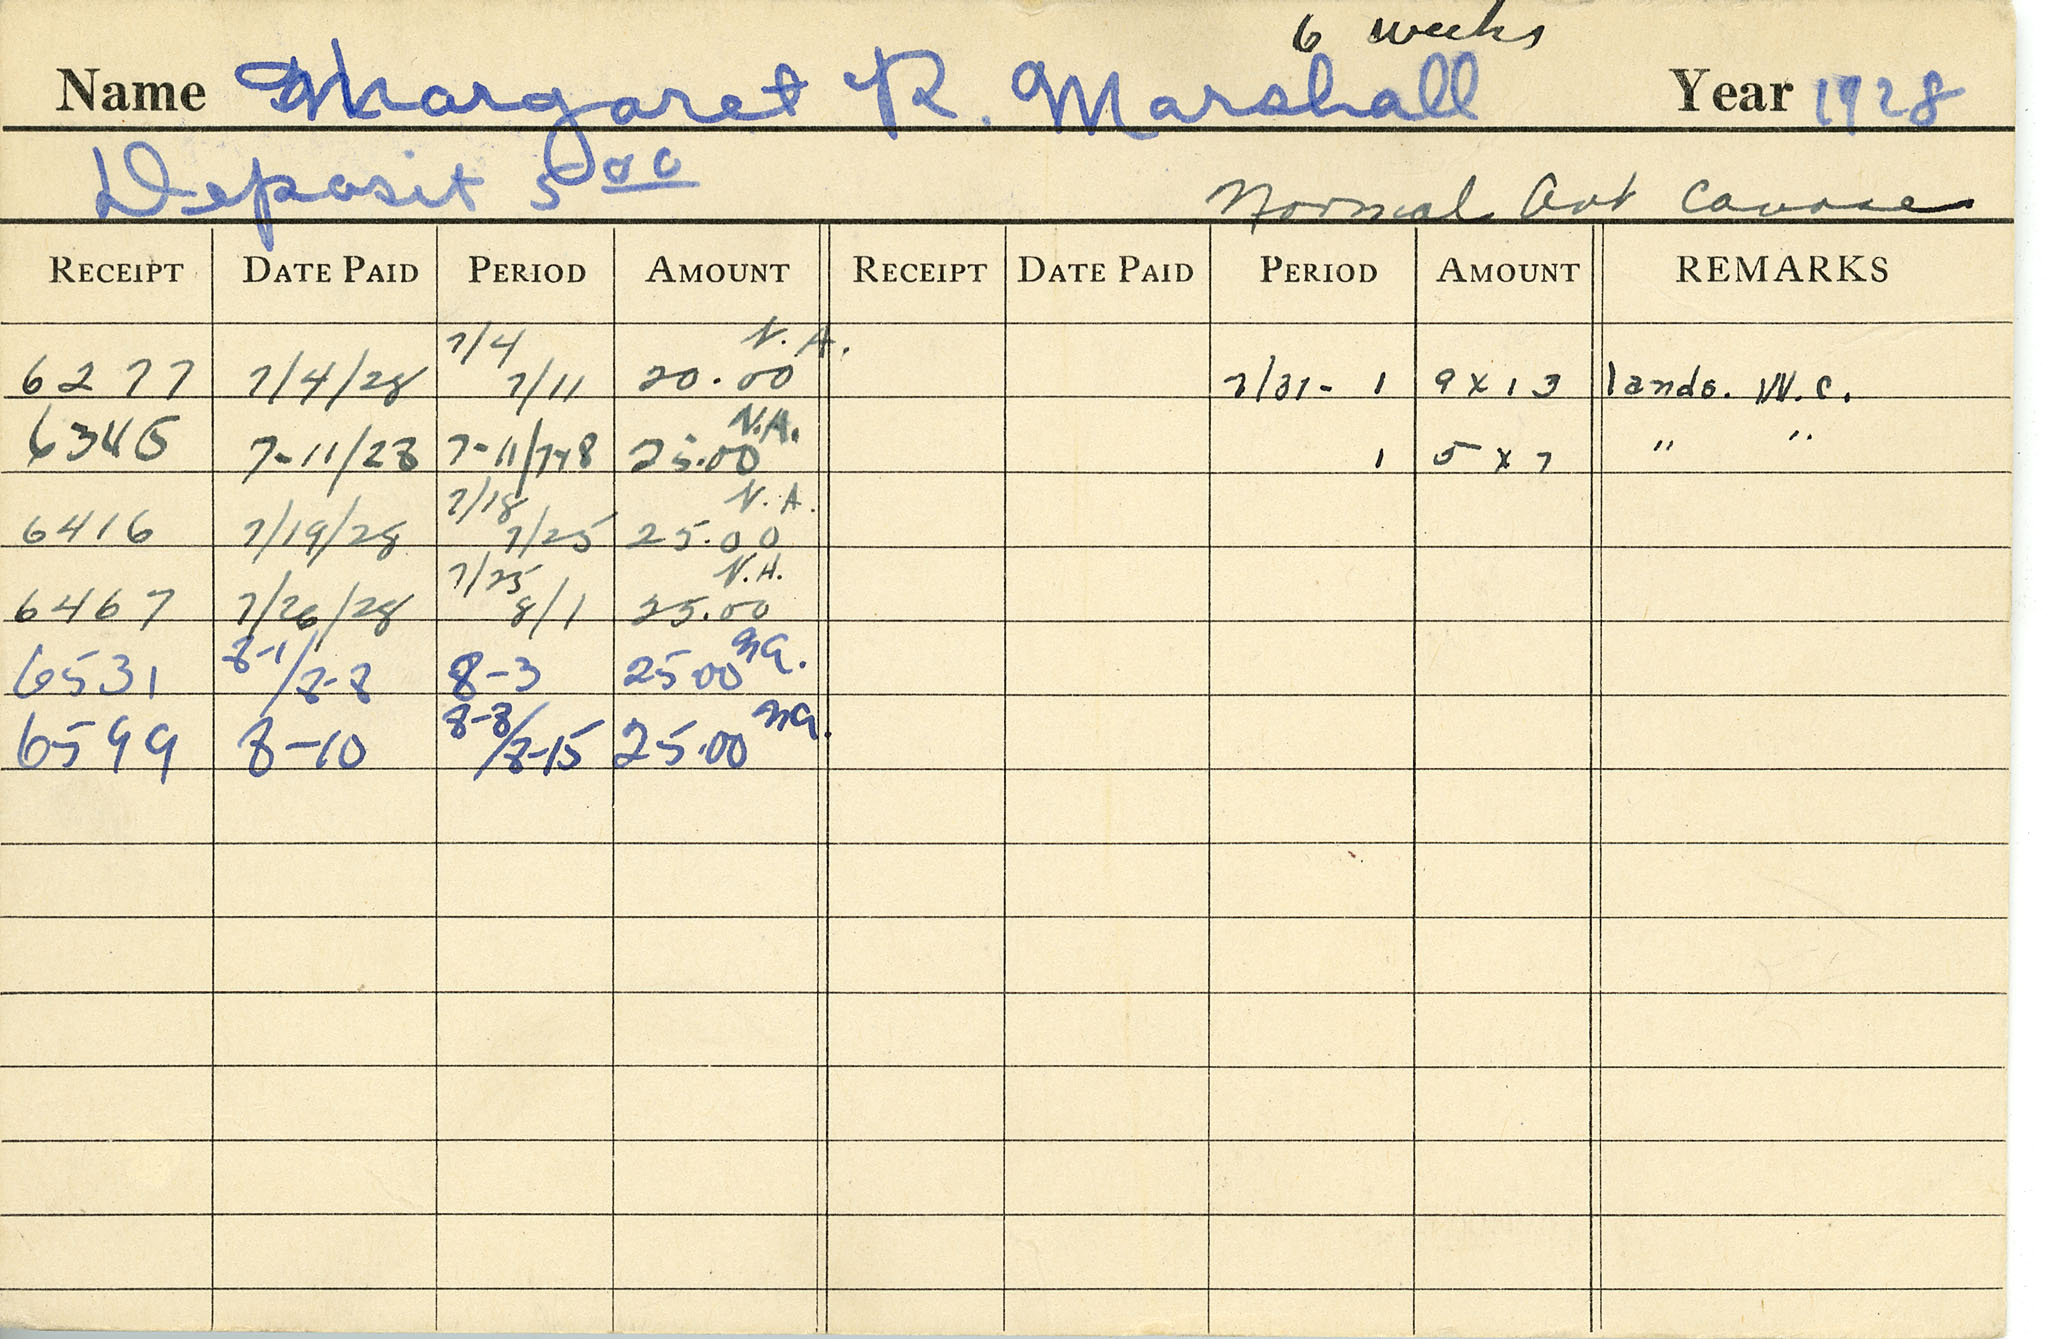 6 weeks
Name Margaret R. Marshall Year 1928
Deposit 5 00 Normal Art Course
RECEIPT DATE PAID PERIOD AMOUNT RECEIPT DATE PAID PERIOD AMOUNT REMARKS
7/4 N. A.
6277 7/4/28 7/11 20.00 7/31- 1 9 x 13 lands. W.C.
N.A.
6345 7-11/28 7-11/7-18 25.00 1 5 x 7 " "
7/18 N. A.
6416 7/19/28 7/25 25.00
7/25 N. A.
6467 7/26/28 8/1 25.00
6531 8-1/8-8 8-3 25 00 na.
6599 8-10 8-8/8-15 25.00 na.